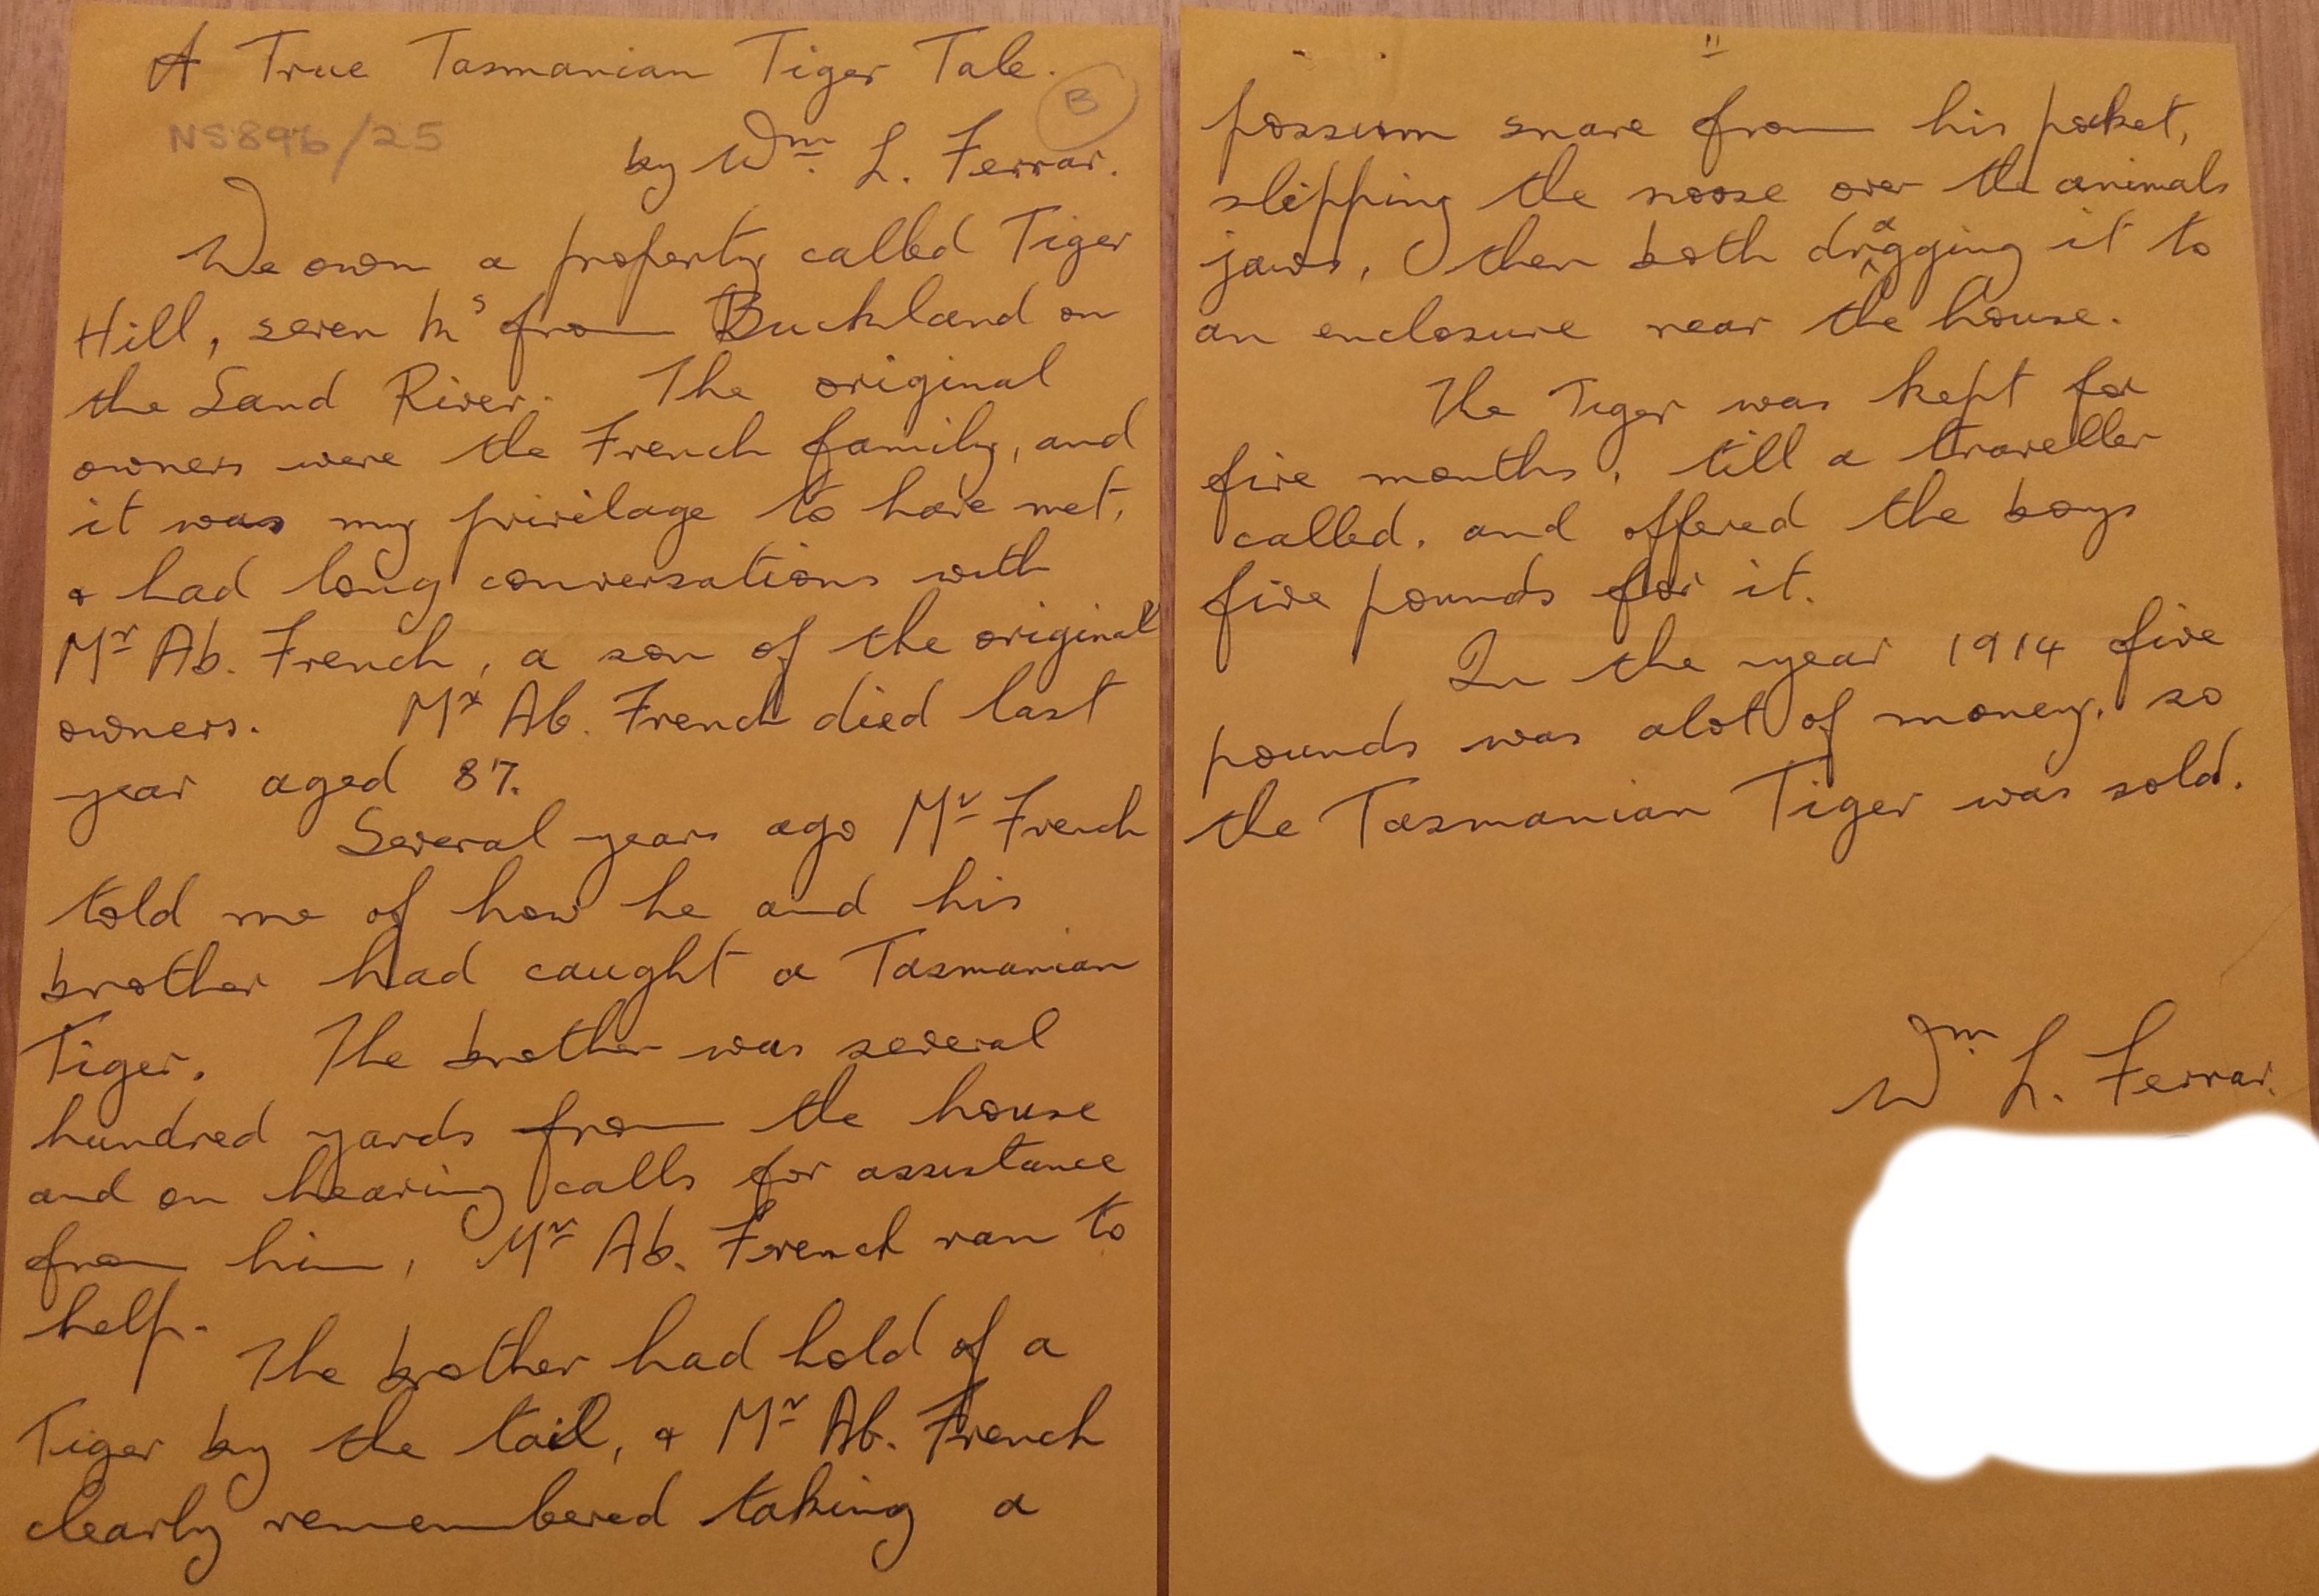 A True Tasmanian Tiger Tale.
B
NS896/25
by Wm. L. Ferrar.
We own a property called Tiger
Hill, seven Ks from Buckland on
the Sand River. The original
owners were the French family, and
it was my privilage to have met,
& had long conversations with
Mr Ab. French, a son of the original
owners. Mr Ab. French died last
year aged 87.
Several years ago Mr French
told me of how he and his
brother had caught a Tasmanian
Tiger. The brother was several
hundred yards from the house
and on hearing calls for assistance
from him, Mr Ab. French ran to
help.
The brother had hold of a
Tiger by the tail, & Mr Ab. French
clearly remembered taking a
"
possum snare from his pocket,
slipping the noose over the animals
jaws, then both dragging it to
an enclosure near the house.
The Tiger was kept for
five months, till a traveller
called, and offered the boys
five pounds for it.
In the year 1914 five
pounds was alot of money, so
the Tasmanian Tiger was sold.
Wm. L. Ferrar.